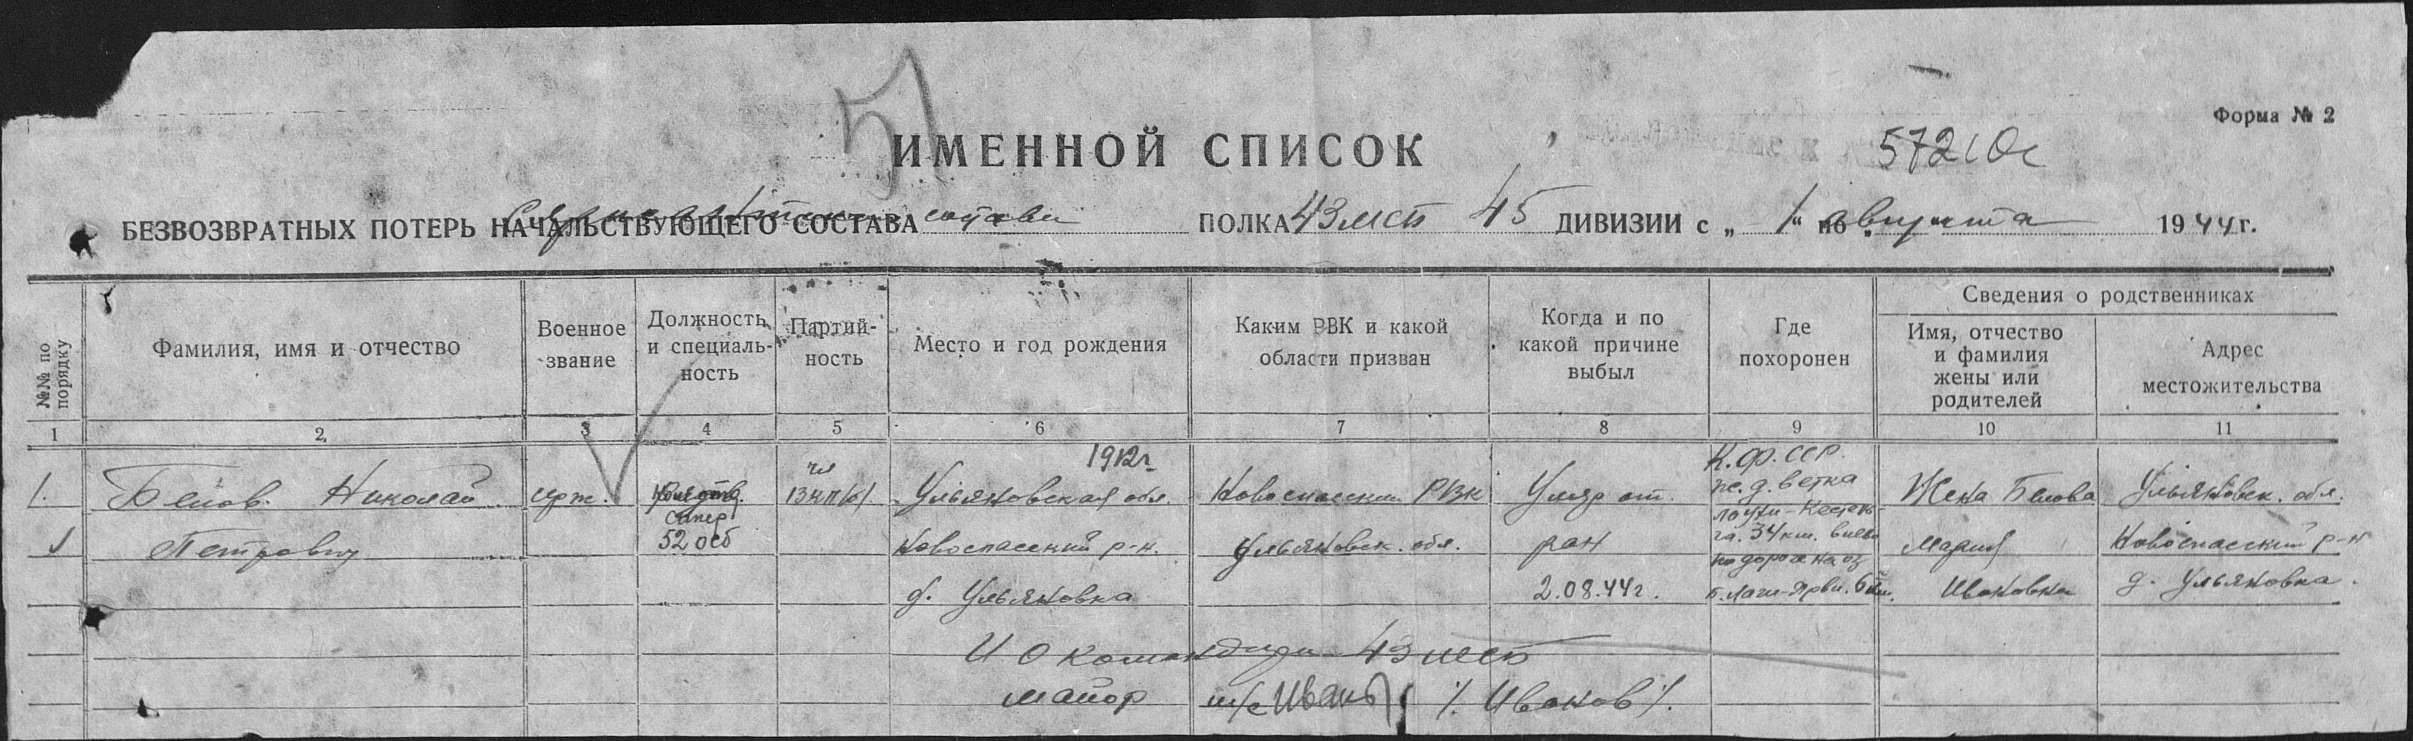 51
Форма № 2
ИМЕННОЙ СПИСОК
БЕЗВОЗВРАТНЫХ ПОТЕРЬ НАЧАЛЬСТВУЮЩЕГО СОСТАВА состава ПОЛКА 43 мсп 45 ДИВИЗИИ с „ 1 “ по „ августа 1944 г.
№№ по порядку
Фамилия, имя и отчество
Военное звание
Должность и специаль-
ность
Партий-
ность
Место и год рождения
Каким РВК и какой
области призван
Когда и по
какой причине
выбыл
Где
похоронен
Сведения о родственниках
Имя, отчество
и фамилия
жены или
родителей
Адрес
местожительства
1 2 3 4 5 6 7 8 9 10 11
1912г
К.Ф.ССР.
1. Белов Николай Ульяновская обл. Новоспасский РВК Умер от ж.д. ветка Жена Белова Ульяновск. обл.
сапер Лоухи-Кестень-
Петрович 52 осб Новоспасский р-н. Ульяновск. обл. ран га. 34 км. Мария Новоспасский р-н
по дороге на оз
д. Ульяновка 2.08.44г. Ивановна д. Ульяновка.
И О командира 43
майор /Иванов/.